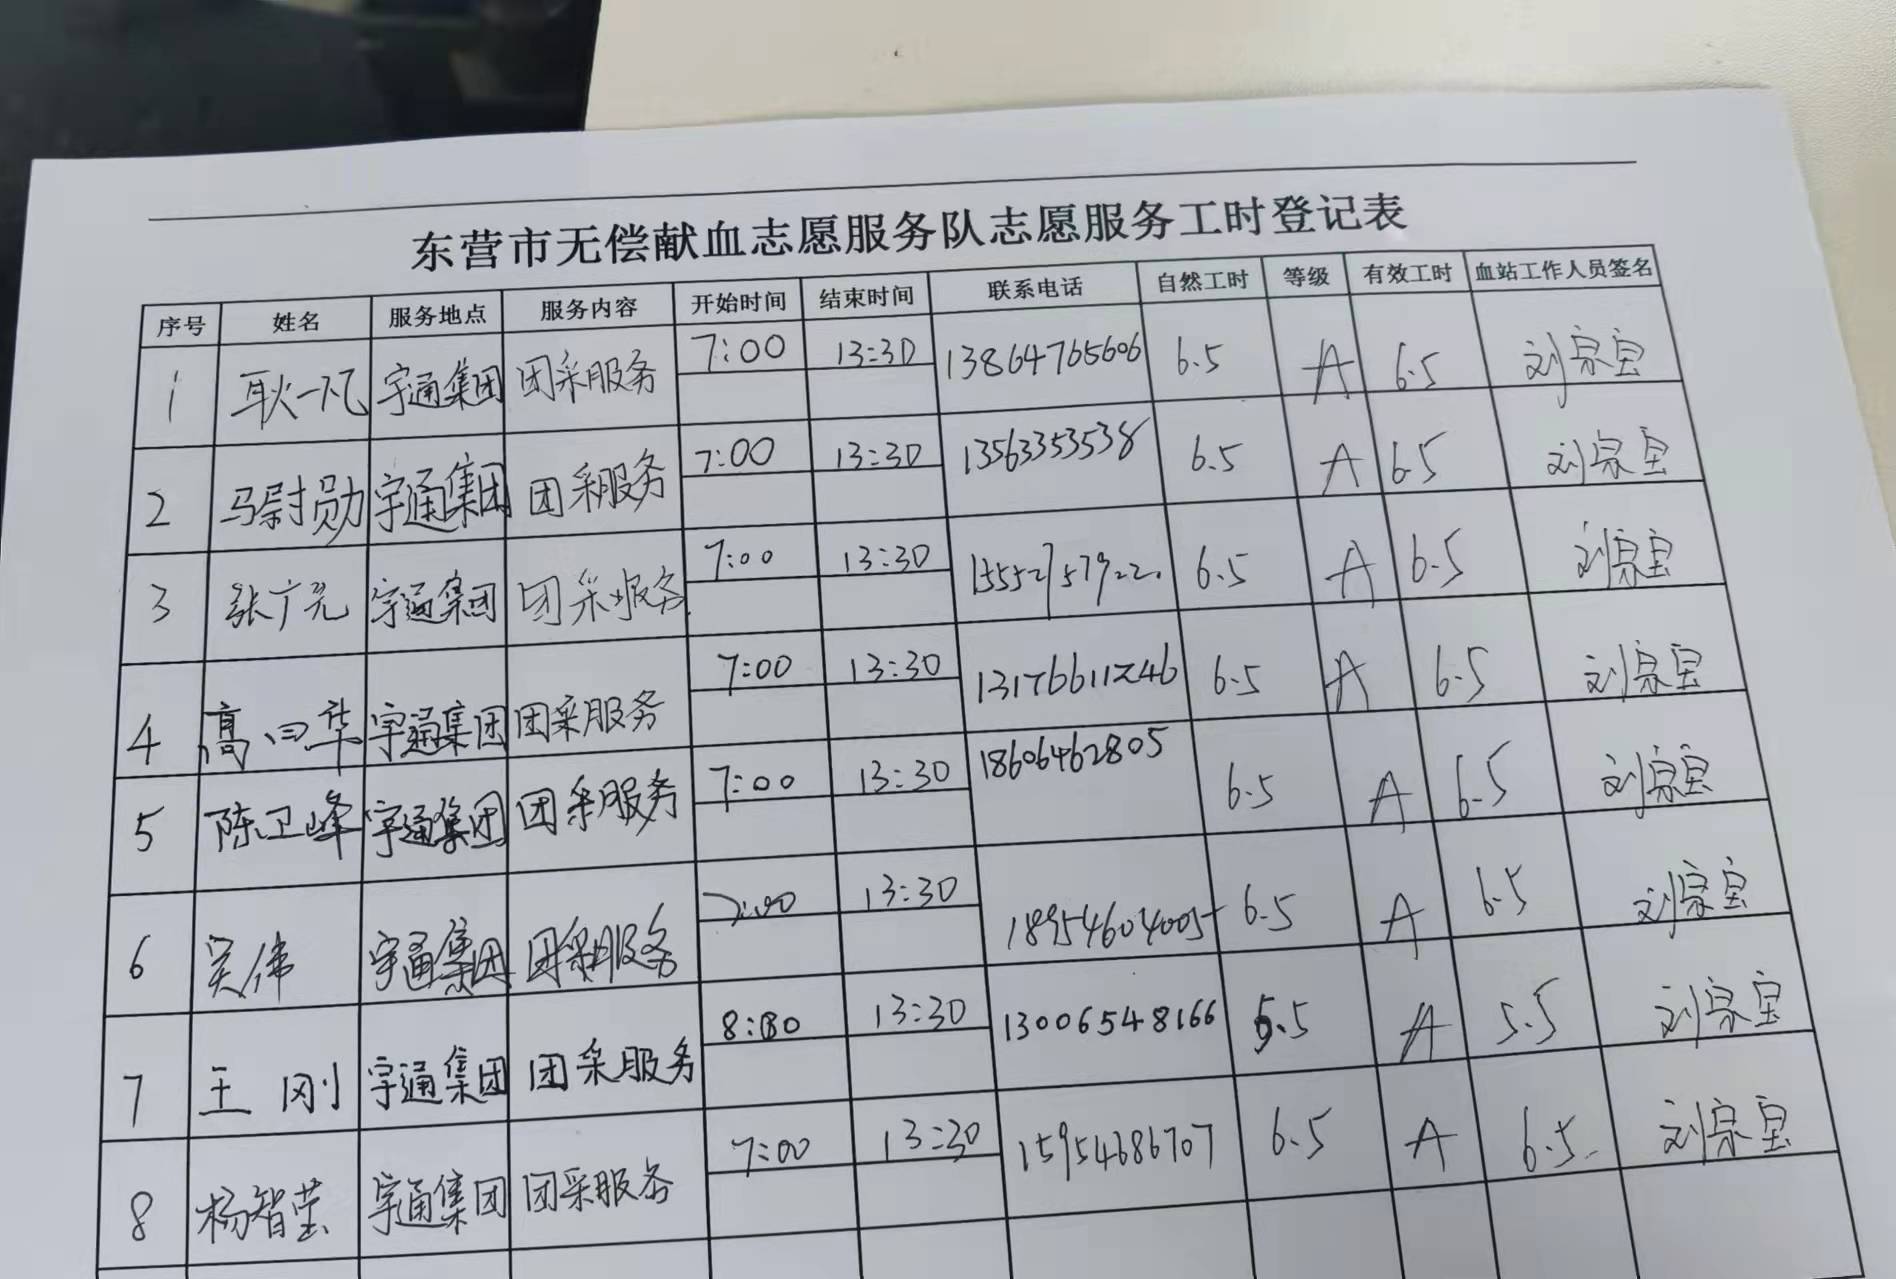 东营市无偿献血志愿服务队志愿服务工时登记表
序号 姓名 服务地点 服务内容 开始时间 结束时间 联系电话 自然工时 等级 有效工时 血站工作人员签名
1 耿一凡 宇通集团 团采服务 7:00 13:30 13864765606 6.5 A 6.5 刘宗宝
2 马尉勋 宇通集团 团采服务 7:00 13:30 13563353538 6.5 A 6.5 刘宗宝
3 张广元 宇通集团 团采服务 7:00 13:30 6.5 A 6.5 刘宗宝
4 高曰华 宇通集团 团采服务 7:00 13:30 13176611246 6.5 A 6.5 刘宗宝
5 陈卫峰 宇通集团 团采服务 7:00 13:30 18606462805 6.5 A 6.5 刘宗宝
6 吴伟 宇通集团 团采服务 7:00 13:30 18954604005 6.5 A 6.5 刘宗宝
7 王刚 宇通集团 团采服务 8:00 13:30 13006548166 5.5 A 5.5 刘宗宝
8 杨智莹 宇通集团 团采服务 7:00 13:30 15954686707 6.5 A 6.5 刘宗宝